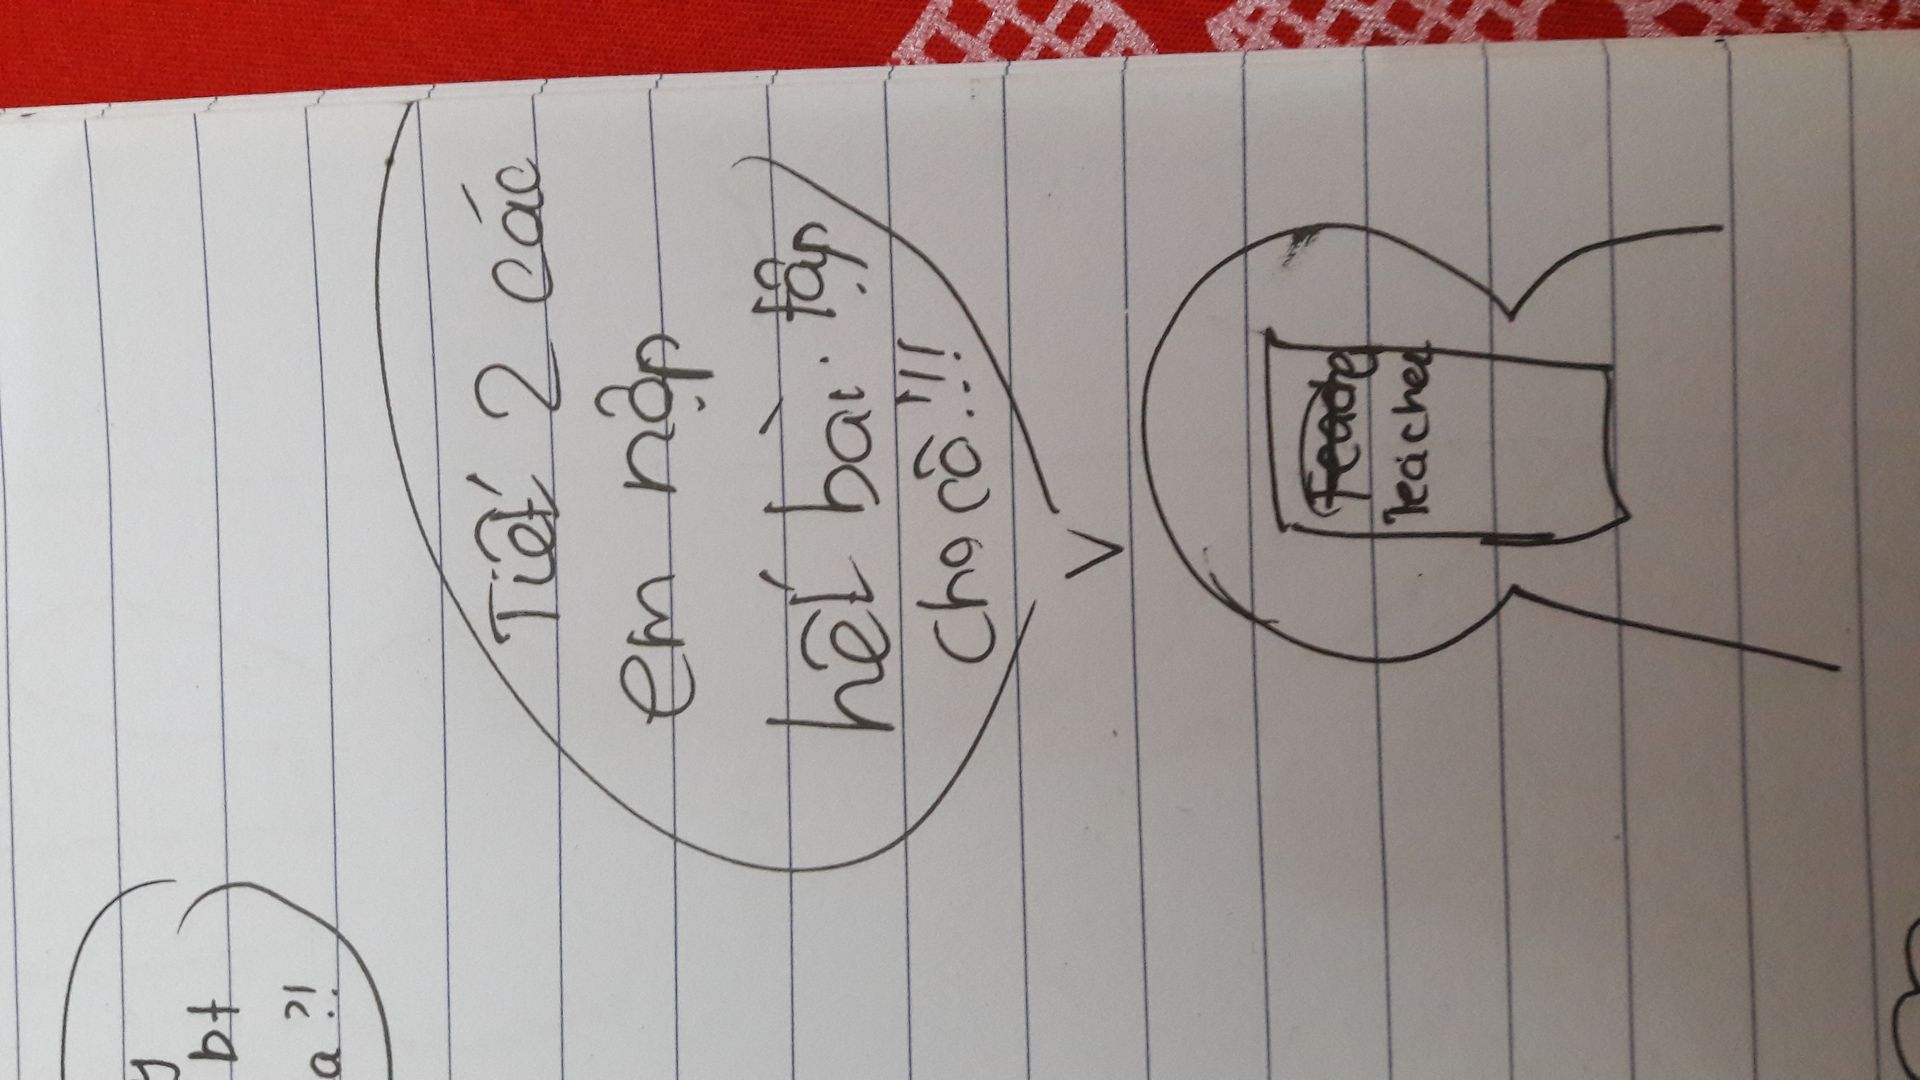 Tiết 2 các
em nộp
hết bài tập
cho cô.!!!
Teacher
bt
a?!